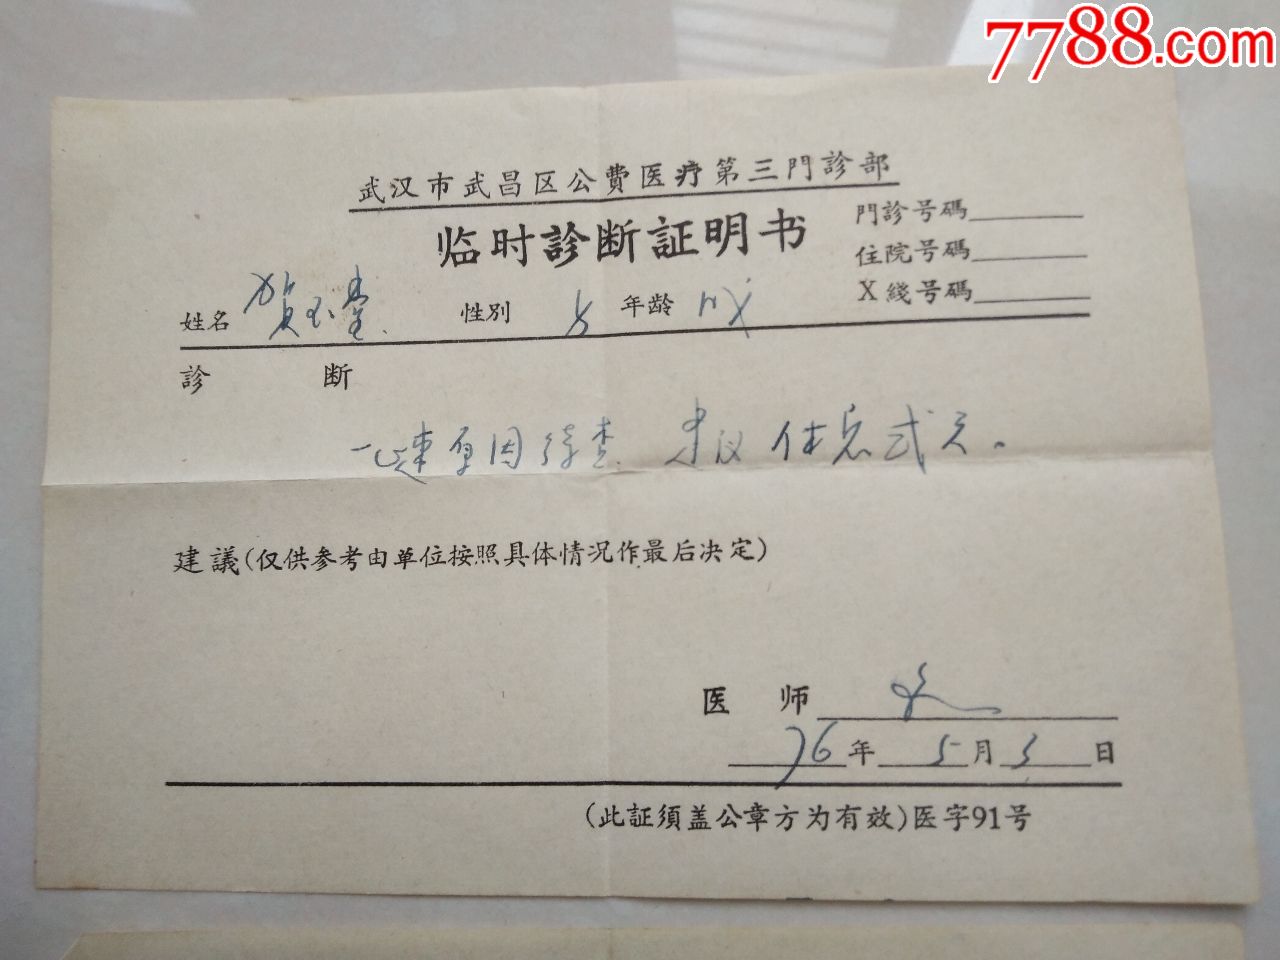 7788.com
武汉市武昌区公費医疗第三門診部
临时診断証明书
門診号碼
住院号碼
X綫号碼
姓名 贺玉堂 性別 女 年龄
診 断
原因待查 建议休息弍天。
建議(仅供参考由单位按照具体情况作最后决定)
医 师
76年5月3日
(此証須盖公章方为有效)医字91号